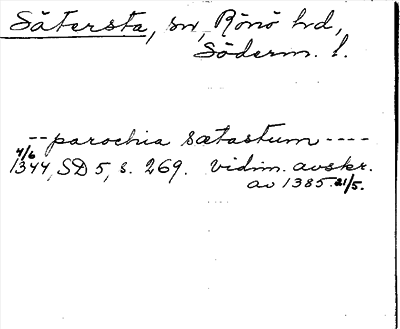 Sätersta, sn, Rönö hd,
Söderm. l.
-- parochia sætastum ----
4/6 1344, SD 5, s. 269. vidim. avskr.
av 1385 21/5.